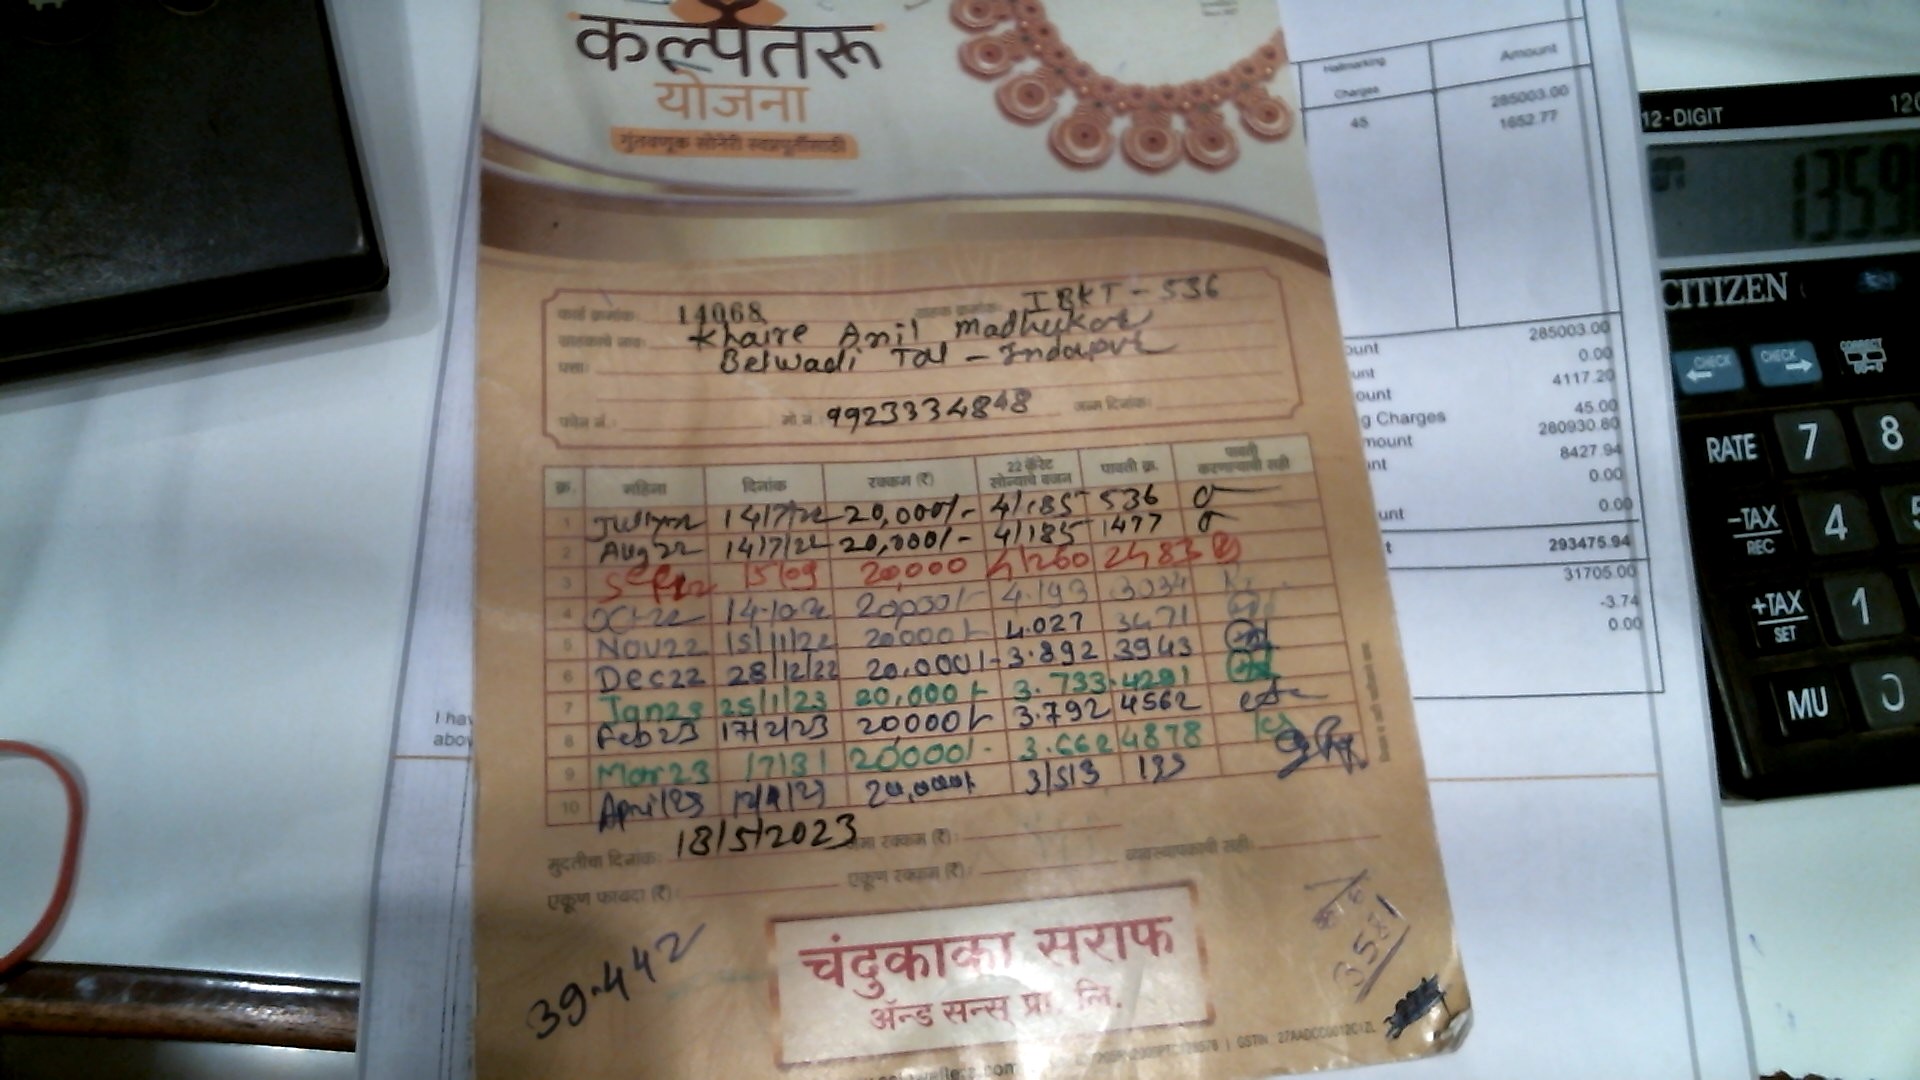 कल्पतरू
योजना
गुंतवणूक सोनेरी स्वप्नपूर्तीसाठी
Hallmarking Charges Amount
285003.00
45 1652.77
12-DIGIT
CITIZEN
CHECK CHECK CORRECT
RATE 7 8
-TAX REC 4 5
+TAX SET 1
MU 0
14068 IBKT - 536
Khaire Anil Madhukar
Belwadi Tal - Indapur
पत्ता:
फोन नं.: मो.नं.: 9923334848 जन्म दिनांक:
क्र. महिना दिनांक रक्कम (₹) 22 कॅरेट सोन्याचे वजन पावती क्र. पावती करणाऱ्याची सही
1 July22 14/7/22 20,000/- 4/185 536
2 Aug22 14/7/22 20,000/- 4/185 1477
3 Sep22 15/09 20,000 4/260 2483
4 Oct-22 14-10-22 20,000/- 4.193 3034
5 Nov22 15/11/22 20000/- 4.027 3471
6 Dec22 28/12/22 20,000/- 3.892 3943
7 Jan23 25/1/23 20,000/- 3.733 4291
8 Feb23 17/2/23 20000/- 3.792 4562
9 Mar23 17/31 20000/- 3.662 4878
10 April/23 20,000/- 3/513
मुदतीचा दिनांक: 18/5/2023 जमा रक्कम (₹):
एकूण फायदा (₹): एकूण रक्कम (₹): व्यवस्थापकाची सही:
39.442
चंदुकाका सराफ
ॲन्ड सन्स् प्रा. लि.
285003.00
0.00
4117.20
g Charges 45.00
280930.80
8427.94
0.00
0.00
293475.94
31705.00
-3.74
0.00